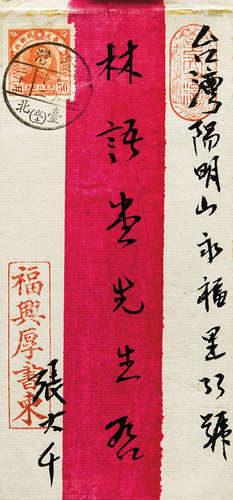 台灣陽明山永福里33號
林語堂先生啓
張大千
福興厚書柬
50
臺北